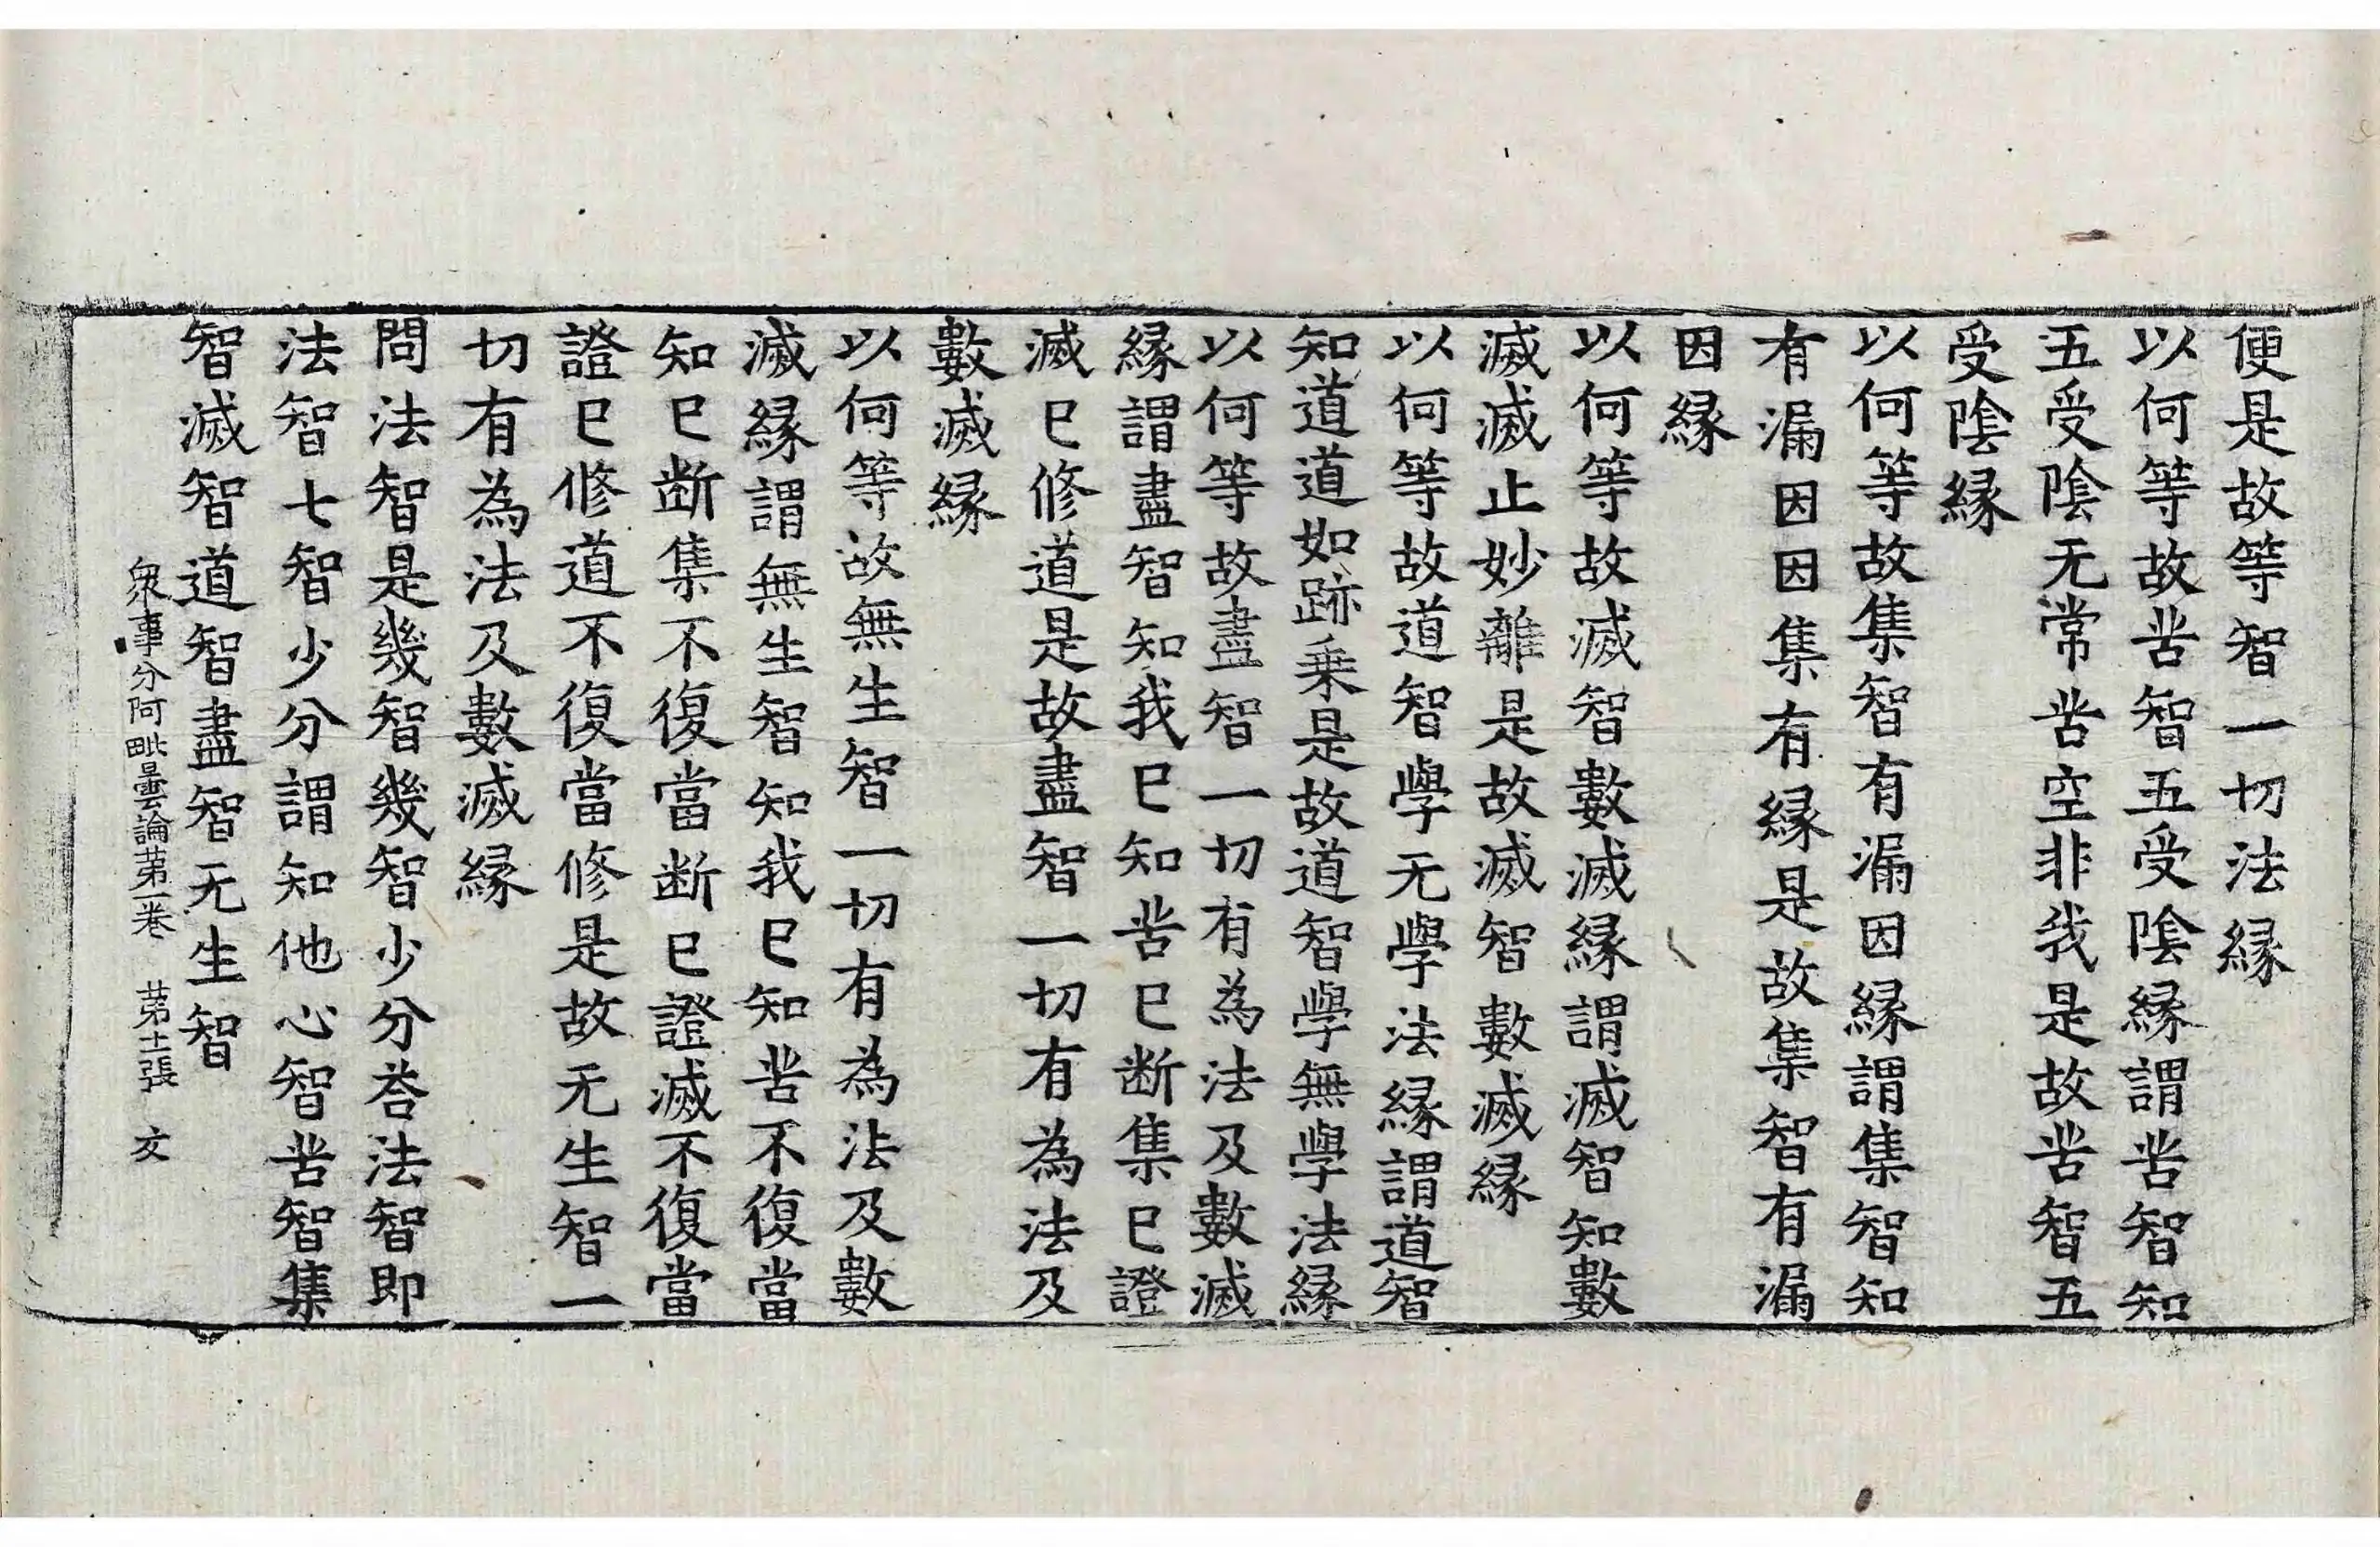 便是故等智一切法縁
以何等故苦智五受陰縁謂苦智知
五受陰无常苦空非我是故苦智五
受陰縁
以何等故集智有漏因縁謂集智知
有漏因因集有縁是故集智有漏
因縁
以何等故滅智數滅縁謂滅智知數
滅滅止妙離是故滅智數滅縁
以何等故道智學无學法縁謂道智
知道道如跡乗是故道智學無學法縁
以何等故盡智一切有為法及數滅
縁謂盡智知我已知苦已断集已證
滅已修道是故盡智一切有為法及
數滅縁
以何等故無生智一切有為法及數
滅縁謂無生智知我已知苦不復當
知已断集不復當断已證滅不復當
證已修道不復當修是故无生智一
切有為法及數滅縁
問法智是幾智幾智少分荅法智即
法智七智少分謂知他心智苦智集
智滅智道智盡智无生智
衆事分阿毗曇論苐一卷 苐十一張 交